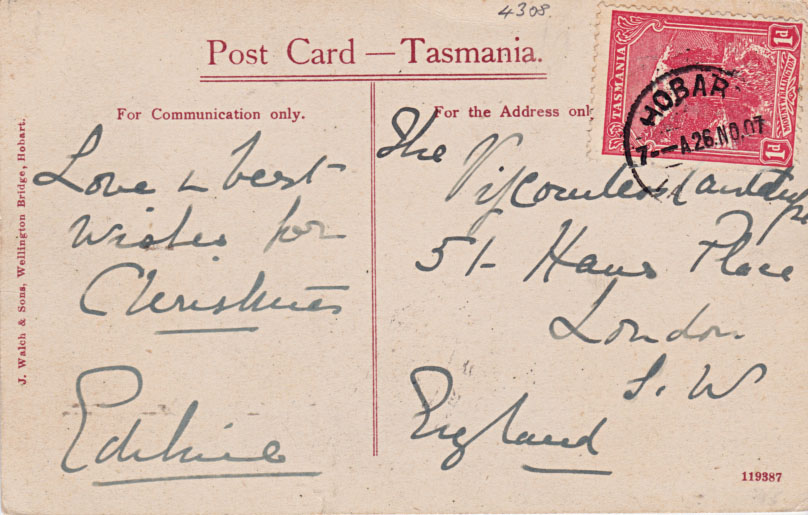 4308.
Post Card — Tasmania.
For Communication only.
Love & best
wishes for
Christmas
For the Address onl
The Viscountess
51 Hans Place
London
S. W
England
TASMANIA
1d
1d
HOBAR
7- -A 26.NO.07
J. Walch & Sons, Wellington Bridge, Hobart.
119387